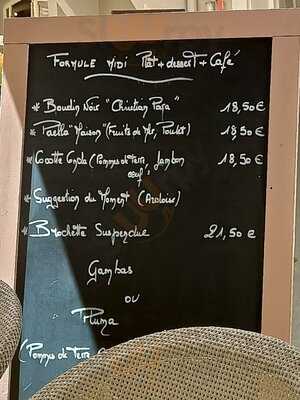 FORMULE MIDI Plat + dessert + Café
* Boudin Noir "Christian Parra" 18,50 €
* Paella "Maison" (Fruits de Mer, Poulet) 18,50 €
* Cocotte (Pommes de Terre, Jambon 18,50 €
oeuf)
* Suggestion du Moment (Ardoise)
* Brochette Suspendue 21,50 €
Gambas
ou
Pluma
(Pommes de Terre